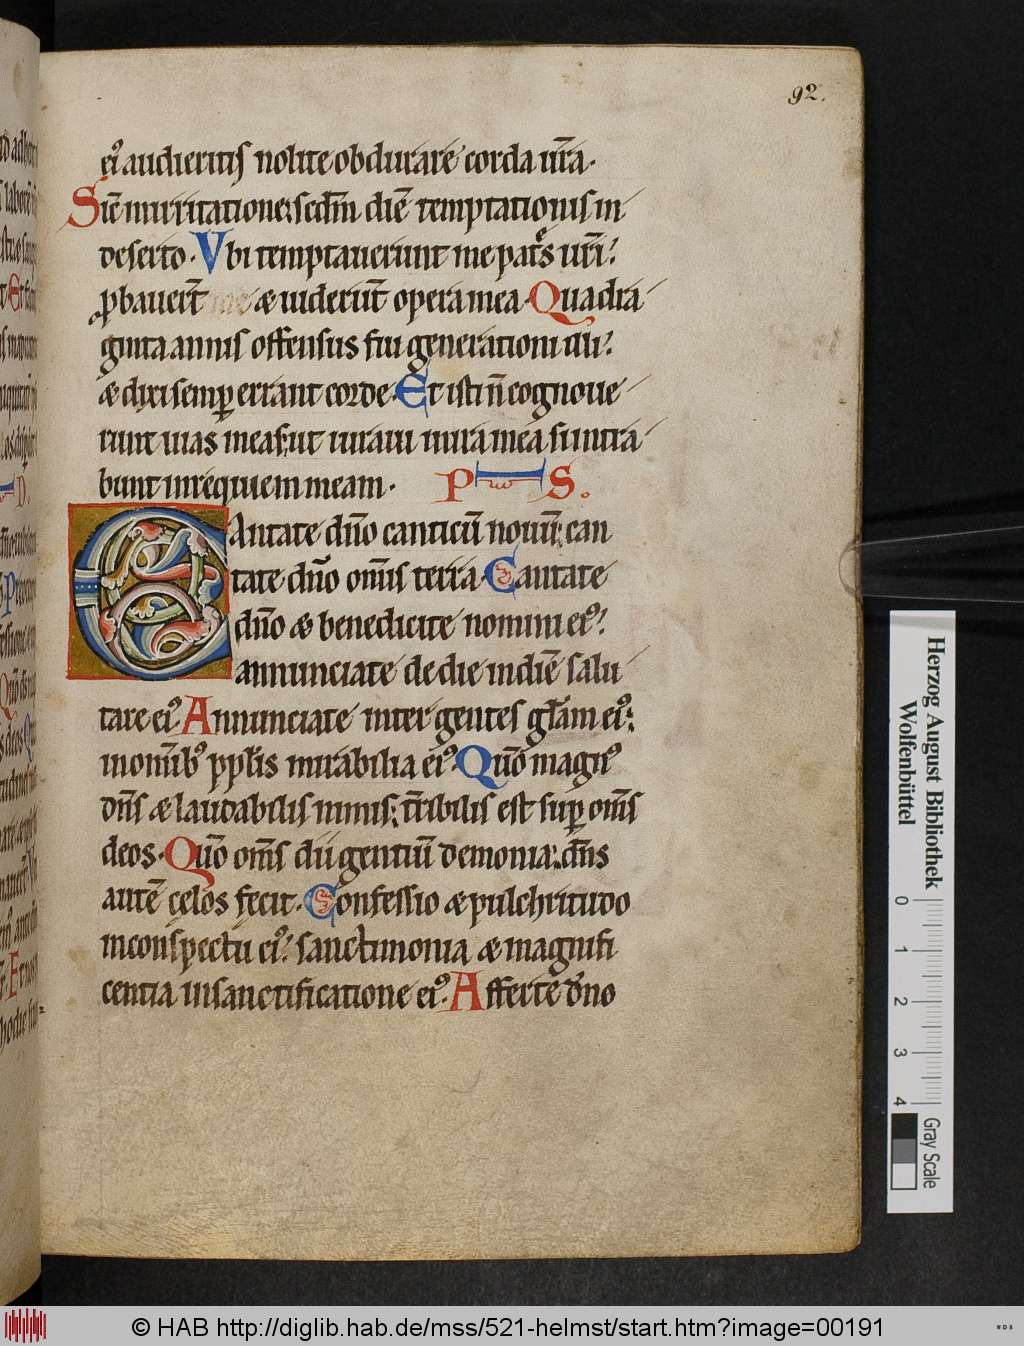 92.
ei᷒ audieritis nolite obdurare corda ur̄a.
Sic̄ in irritatione: scd̄m diē temptationis in
deserto. Vbi temptauerunt me patrēs ur̄i:
ꝓbauer̄t me & uiderūt opera mea. Quadra
ginta annis offensus fui generationi illi:
& dixi semꝑ errant corde. Et isti n̄ cognoue
runt uias meas: ut iuraui in ira mea si intra
bunt in requiem meam. PS.
Cantate dn̄o canticū nouū: can
tate dn̄o om̄is terra. Cantate
dn̄o & benedicite nomini ei᷒:
annunciate de die in diē salu
tare ei᷒. Annunciate inter gentes gl̄am ei᷒:
in omīb᷒ ppl̄is mirabilia ei᷒. Qm̄o magn᷒
dn̄s & laudabilis nimis: tr̄ibilis est suꝑ om̄s
deos. Qm̄o om̄s dii gentiū demonia: dn̄s
autē cęlos fecit. Confessio & pulchritudo
in conspectu ei᷒: sanctimonia & magnifi
centia in sanctificatione ei᷒. Afferte dn̄o
Herzog August Bibliothek
Wolfenbüttel
0 1 2 3 4
Gray Scale
© HAB http://diglib.hab.de/mss/521-helmst/start.htm?image=00191